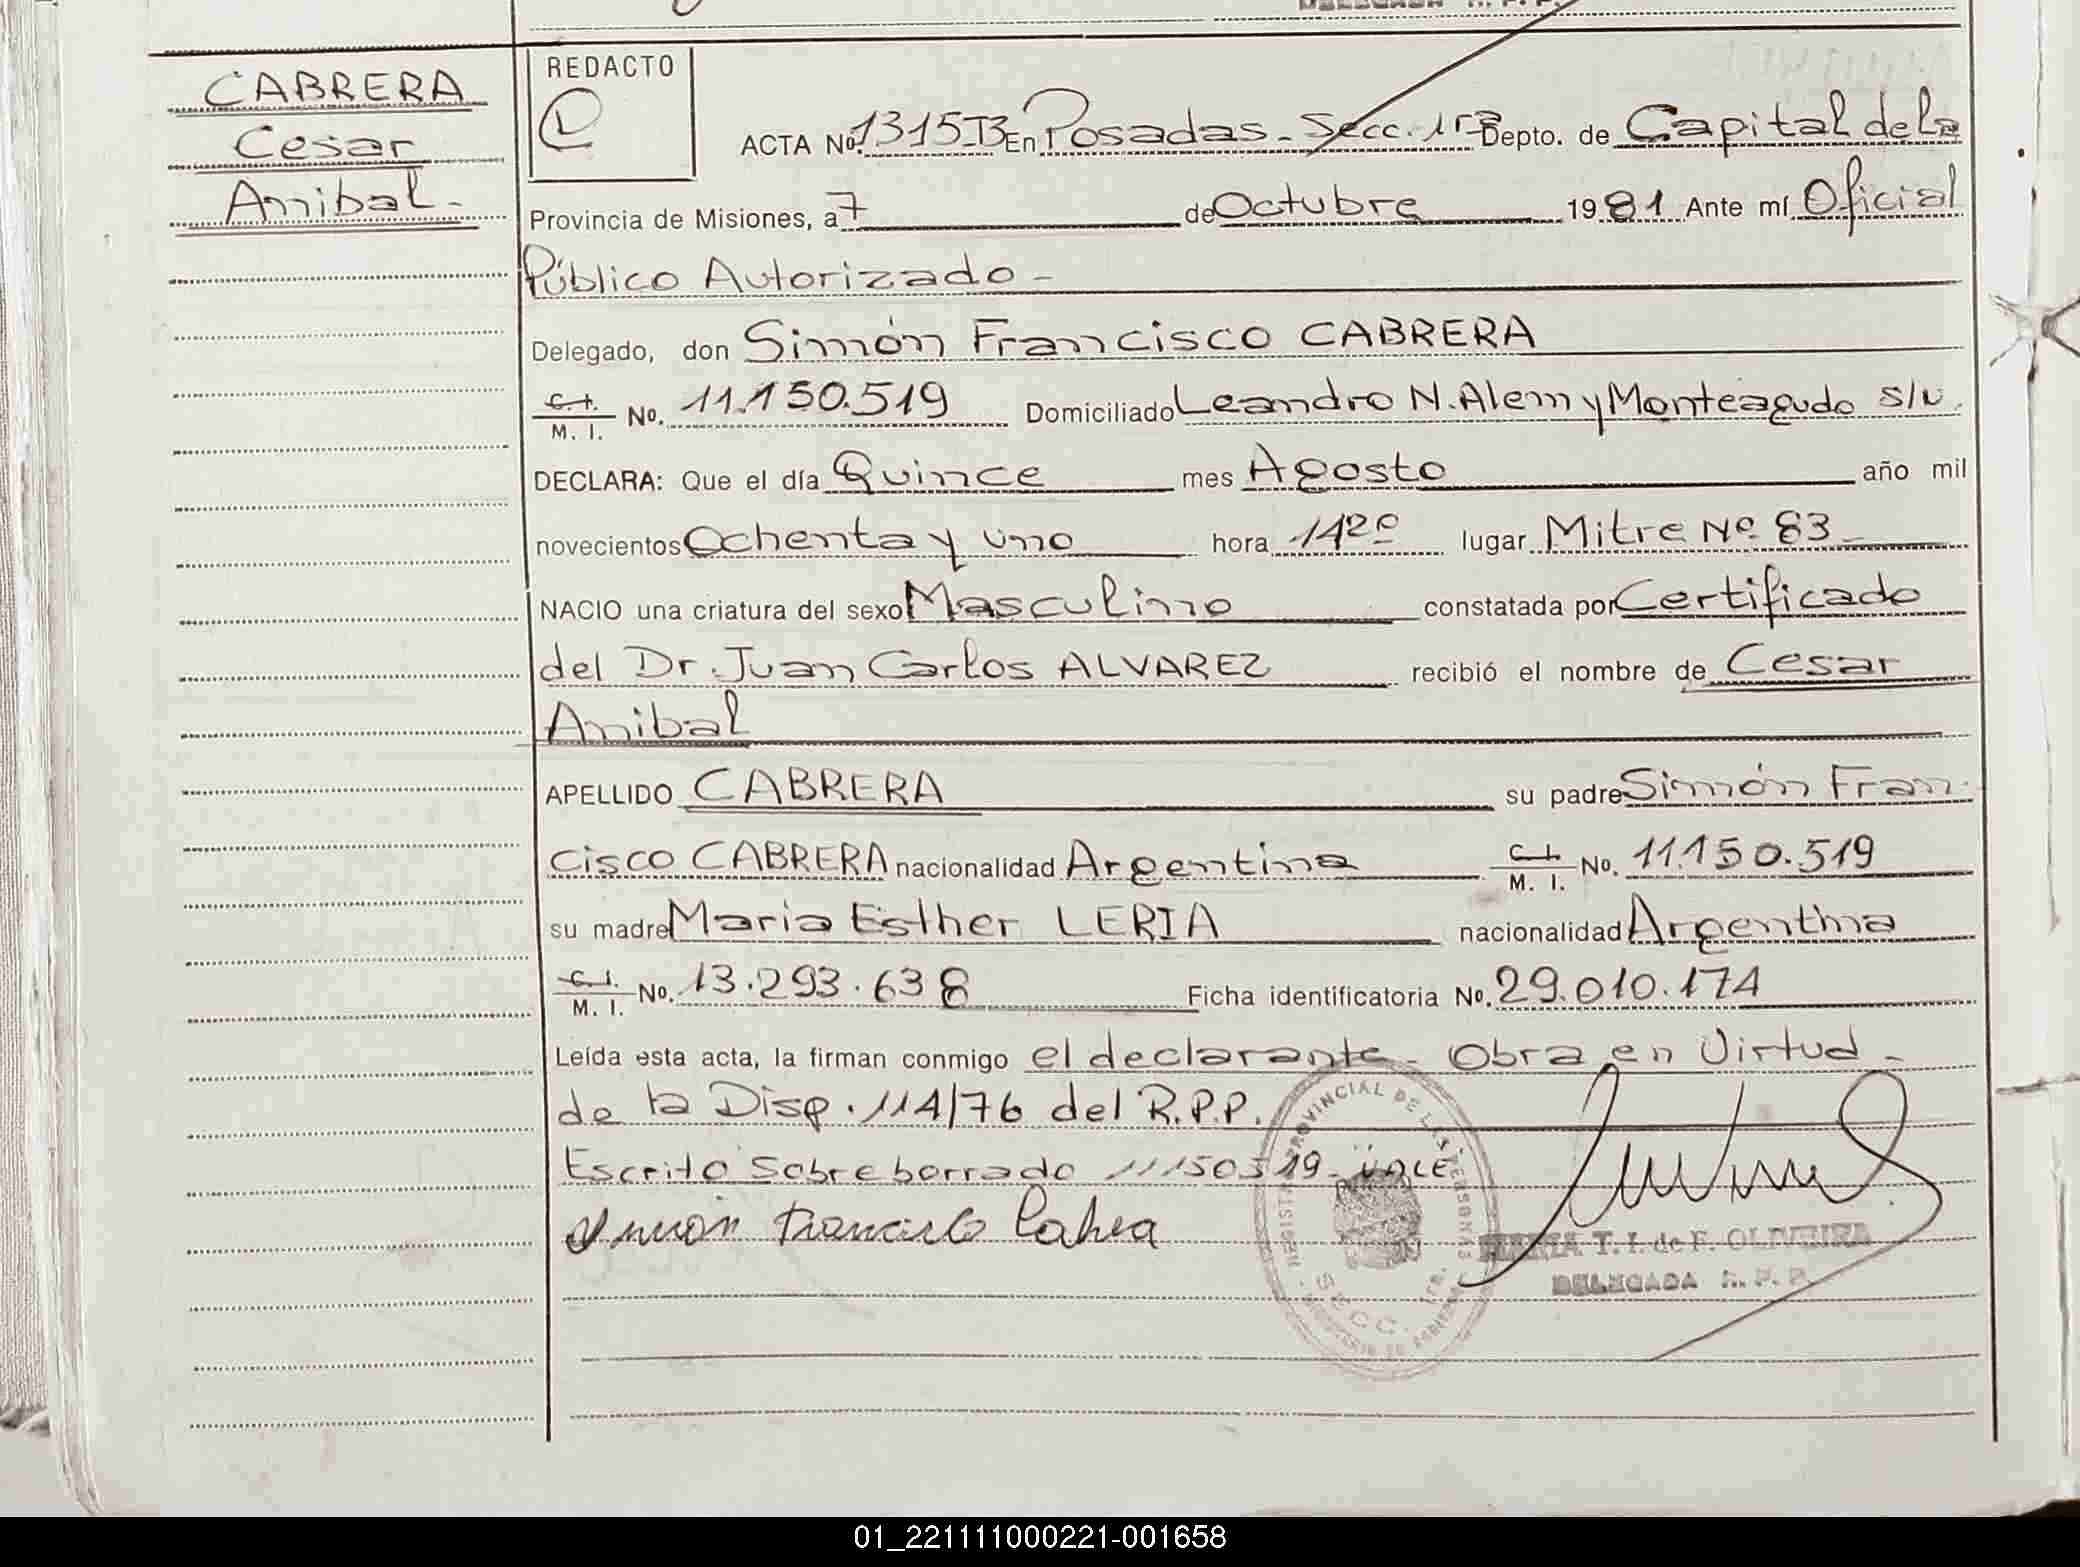 DELEGADA R. P. P.
CABRERA
Cesar
Anibal.-
REDACTO
ACTA No. 1315 I3 En Posadas.- Secc. 1ra Depto. de Capital de la
Provincia de Misiones, a 7 de Octubre 1981 Ante mí Oficial
Público Autorizado -
Delegado, don Simón Francisco CABRERA
C. I. M. I. No. 11.150.519 Domiciliado Leandro N. Alem y Monteagudo s/n.
DECLARA: Que el día Quince mes Agosto año mil
novecientos Ochenta y uno hora 11 20 lugar Mitre No. 83 -
NACIO una criatura del sexo Masculino constatada por Certificado
del Dr. Juan Carlos ALVAREZ recibió el nombre de Cesar
Anibal
APELLIDO CABRERA su padre Simón Fran-
cisco CABRERA nacionalidad Argentina C. I. M. I. No. 11.150.519
su madre Maria Esther LERIA nacionalidad Argentina
C. I. M. I. No. 13.293.638 Ficha identificatoria No. 29.010.174
Leída esta acta, la firman conmigo el declarante - Obra en Virtud -
de la Disp. 114/76 del R.P.P.
Escrito sobreborrado 11150519 - VALE
Simón Francisco Cabrera
REGISTRO PROVINCIAL DE LAS PERSONAS
SECC. 1ra.
MARIA T. I. de F. OLIVEIRA
DELEGADA R. P. P.
01_221111000221-001658